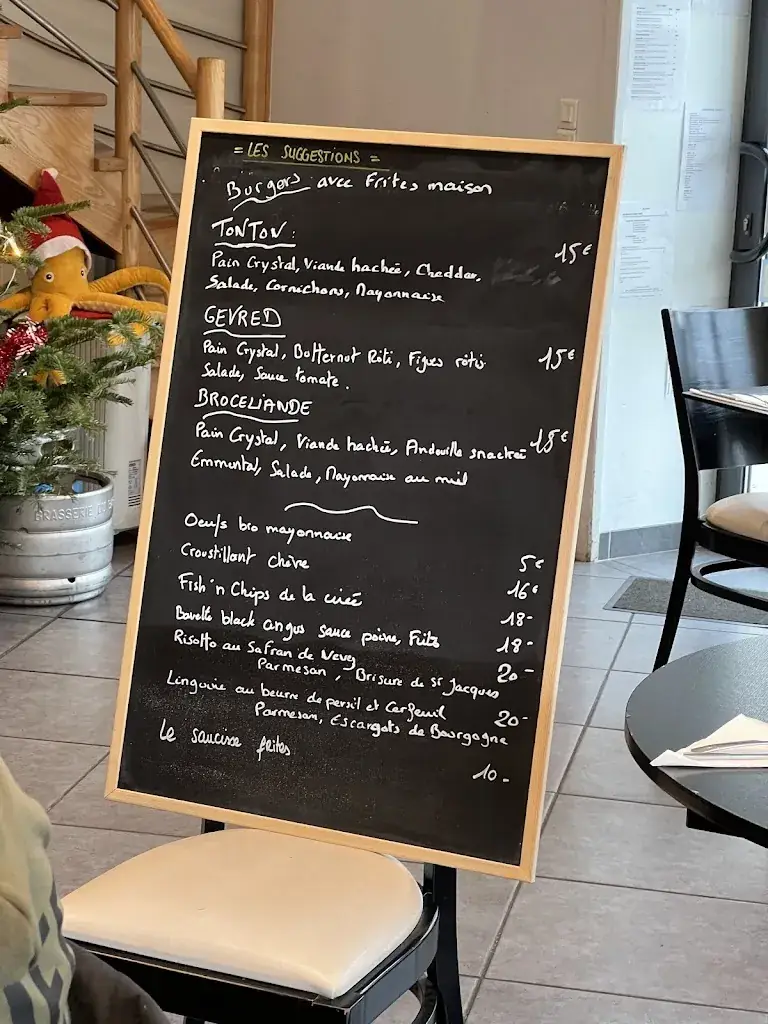 = LES SUGGESTIONS =
Burgers avec Frites maison
TONTON :
15€
Pain Crystal, Viande hachée, Cheddar,
Salade, Cornichons, Mayonnaise
GEVRED
Pain Crystal, Butternut Rôti, Figues rôtis 15€
Salade, Sauce tomate.
BROCELIANDE
Pain Crystal, Viande hachée, Andouille snackée 18€
Emmental, Salade, Mayonnaise au miel
Oeufs bio mayonnaise 5€
Croustillant chèvre 16€
Fish'n Chips de la criée 18-
Bavette black angus sauce poivre, Frites 18-
Risotto au Safran de Vevey 20-
Parmesan, Brisure de St Jacques
Linguine au beurre de persil et Cerfeuil 20-
Parmesan, Escargots de Bourgogne
Le saucisse frites 10-
BRASSERIE